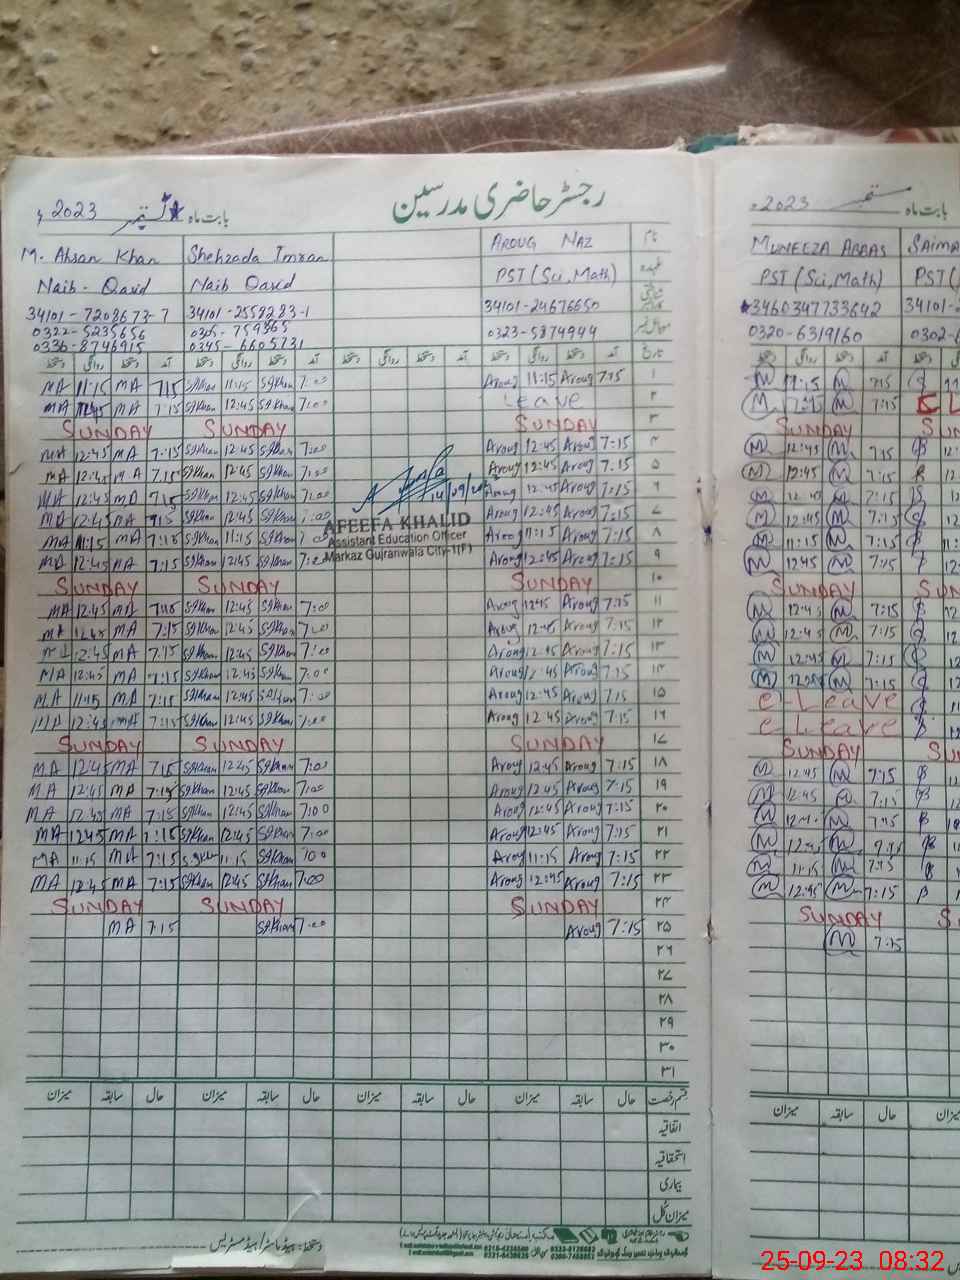 رجسٹر حاضری مدرسین
بابت ماہ ستمبر 2023ء
M. Ahsan Khan Shehzada Imran AROUG NAZ نام
Naib-Qasid Naib Qasid PST (Sci, Math) عہدہ
34101-7208673-7 34101-2558283-1 34101-24676650
0322-5235656 0323-5874944
0336-8746915 0345-6605731
دستخط روانگی دستخط آمد دستخط روانگی دستخط آمد دستخط روانگی دستخط آمد دستخط روانگی دستخط آمد تاریخ
MA 11:15 MA 7:15 SgKhan 11:15 SgKhan 7:00 Aroug 11:15 Aroug 7:15 ۱
MA 12:45 MA 7:15 SgKhan 12:45 SgKhan 7:00 Leave ۲
SUNDAY SUNDAY SUNDAY ۳
MA 12:45 MA 7:15 SgKhan 12:45 SgKhan 7:00 Aroug 12:45 Aroug 7:15 ۴
MA 12:45 MA 7:15 SgKhan 12:45 SgKhan 7:00 Aroug 12:45 Aroug 7:15 ۵
MA 12:45 MA 7:15 SgKhan 12:45 SgKhan 7:00 Aroug 12:45 Aroug 7:15 ۶
MA 12:45 MA 7:15 SgKhan 12:45 SgKhan 7:00 Aroug 12:45 Aroug 7:15 ۷
MA 11:15 MA 7:15 SgKhan 11:15 SgKhan 7:00 Aroug 11:15 Aroug 7:15 ۸
MA 12:45 MA 7:15 SgKhan 12:45 SgKhan 7:00 Aroug 12:45 Aroug 7:15 ۹
14/09/2023
AFEEFA KHALID
Assistant Education Officer
Markaz Gujranwala City-1(F)
SUNDAY SUNDAY SUNDAY ۱۰
MA 12:45 MA 7:15 SgKhan 12:45 SgKhan 7:00 Aroug 12:45 Aroug 7:15 ۱۱
MA 12:45 MA 7:15 SgKhan 12:45 SgKhan 7:00 Aroug 12:45 Aroug 7:15 ۱۲
MA 12:45 MA 7:15 SgKhan 12:45 SgKhan 7:00 Aroug 12:45 Aroug 7:15 ۱۳
MA 12:45 MA 7:15 SgKhan 12:45 SgKhan 7:00 Aroug 12:45 Aroug 7:15 ۱۴
MA 11:15 MA 7:15 SgKhan 12:45 SgKhan 7:00 Aroug 12:45 Aroug 7:15 ۱۵
MA 12:45 MA 7:15 SgKhan 12:45 SgKhan 7:00 Aroug 12:45 Aroug 7:15 ۱۶
SUNDAY SUNDAY SUNDAY ۱۷
MA 12:45 MA 7:15 SgKhan 12:45 SgKhan 7:00 Aroug 12:45 Aroug 7:15 ۱۸
MA 12:45 MA 7:15 SgKhan 12:45 SgKhan 7:00 Aroug 12:45 Aroug 7:15 ۱۹
MA 12:45 MA 7:15 SgKhan 12:45 SgKhan 7:00 Aroug 12:45 Aroug 7:15 ۲۰
MA 12:45 MA 7:15 SgKhan 12:45 SgKhan 7:00 Aroug 12:45 Aroug 7:15 ۲۱
MA 11:15 MA 7:15 SgKhan 11:15 SgKhan 7:00 Aroug 11:15 Aroug 7:15 ۲۲
MA 12:45 MA 7:15 SgKhan 12:45 SgKhan 7:00 Aroug 12:45 Aroug 7:15 ۲۳
SUNDAY SUNDAY SUNDAY ۲۴
MA 7:15 SgKhan 7:00 Aroug 7:15 ۲۵
۲۶
۲۷
۲۸
۲۹
۳۰
۳۱
قسم رخصت حال سابقہ میزان حال سابقہ میزان حال سابقہ میزان حال سابقہ میزان
اتفاقیہ
استحقاقیہ
بیماری
میزان کل
دستخط: ہیڈ ماسٹر / ہیڈ مسٹریس
بابت ماہ ستمبر 2023ء
MUNEEZA ABBAS SAIMA
PST (Sci, Math) PST (
3460347733642 34101-
0320-6319160 0302-
دستخط روانگی دستخط آمد دستخط
M 11:15 M 7:15
M M 7:15
SUNDAY SUN
M 12:45 M 7:15
M 12:45 M 7:15
M 12:45 M 7:15
M 12:45 M 7:15
M 11:15 M 7:15
M 12:45 M 7:15
SUNDAY SUN
M 12:45 M 7:15
M 12:45 M 7:15
M 12:45 M 7:15
M M 7:15
e-Leave
e-Leave
SUNDAY SU
M 12:45 M 7:15
M 12:45 M 7:15
M 12:45 M 7:15
M 12:45 M 7:15
M 11:15 M 7:15
M 12:45 M 7:15
SUNDAY S
M 7:15
حال سابقہ میزان میزان
25-09-23 08:32